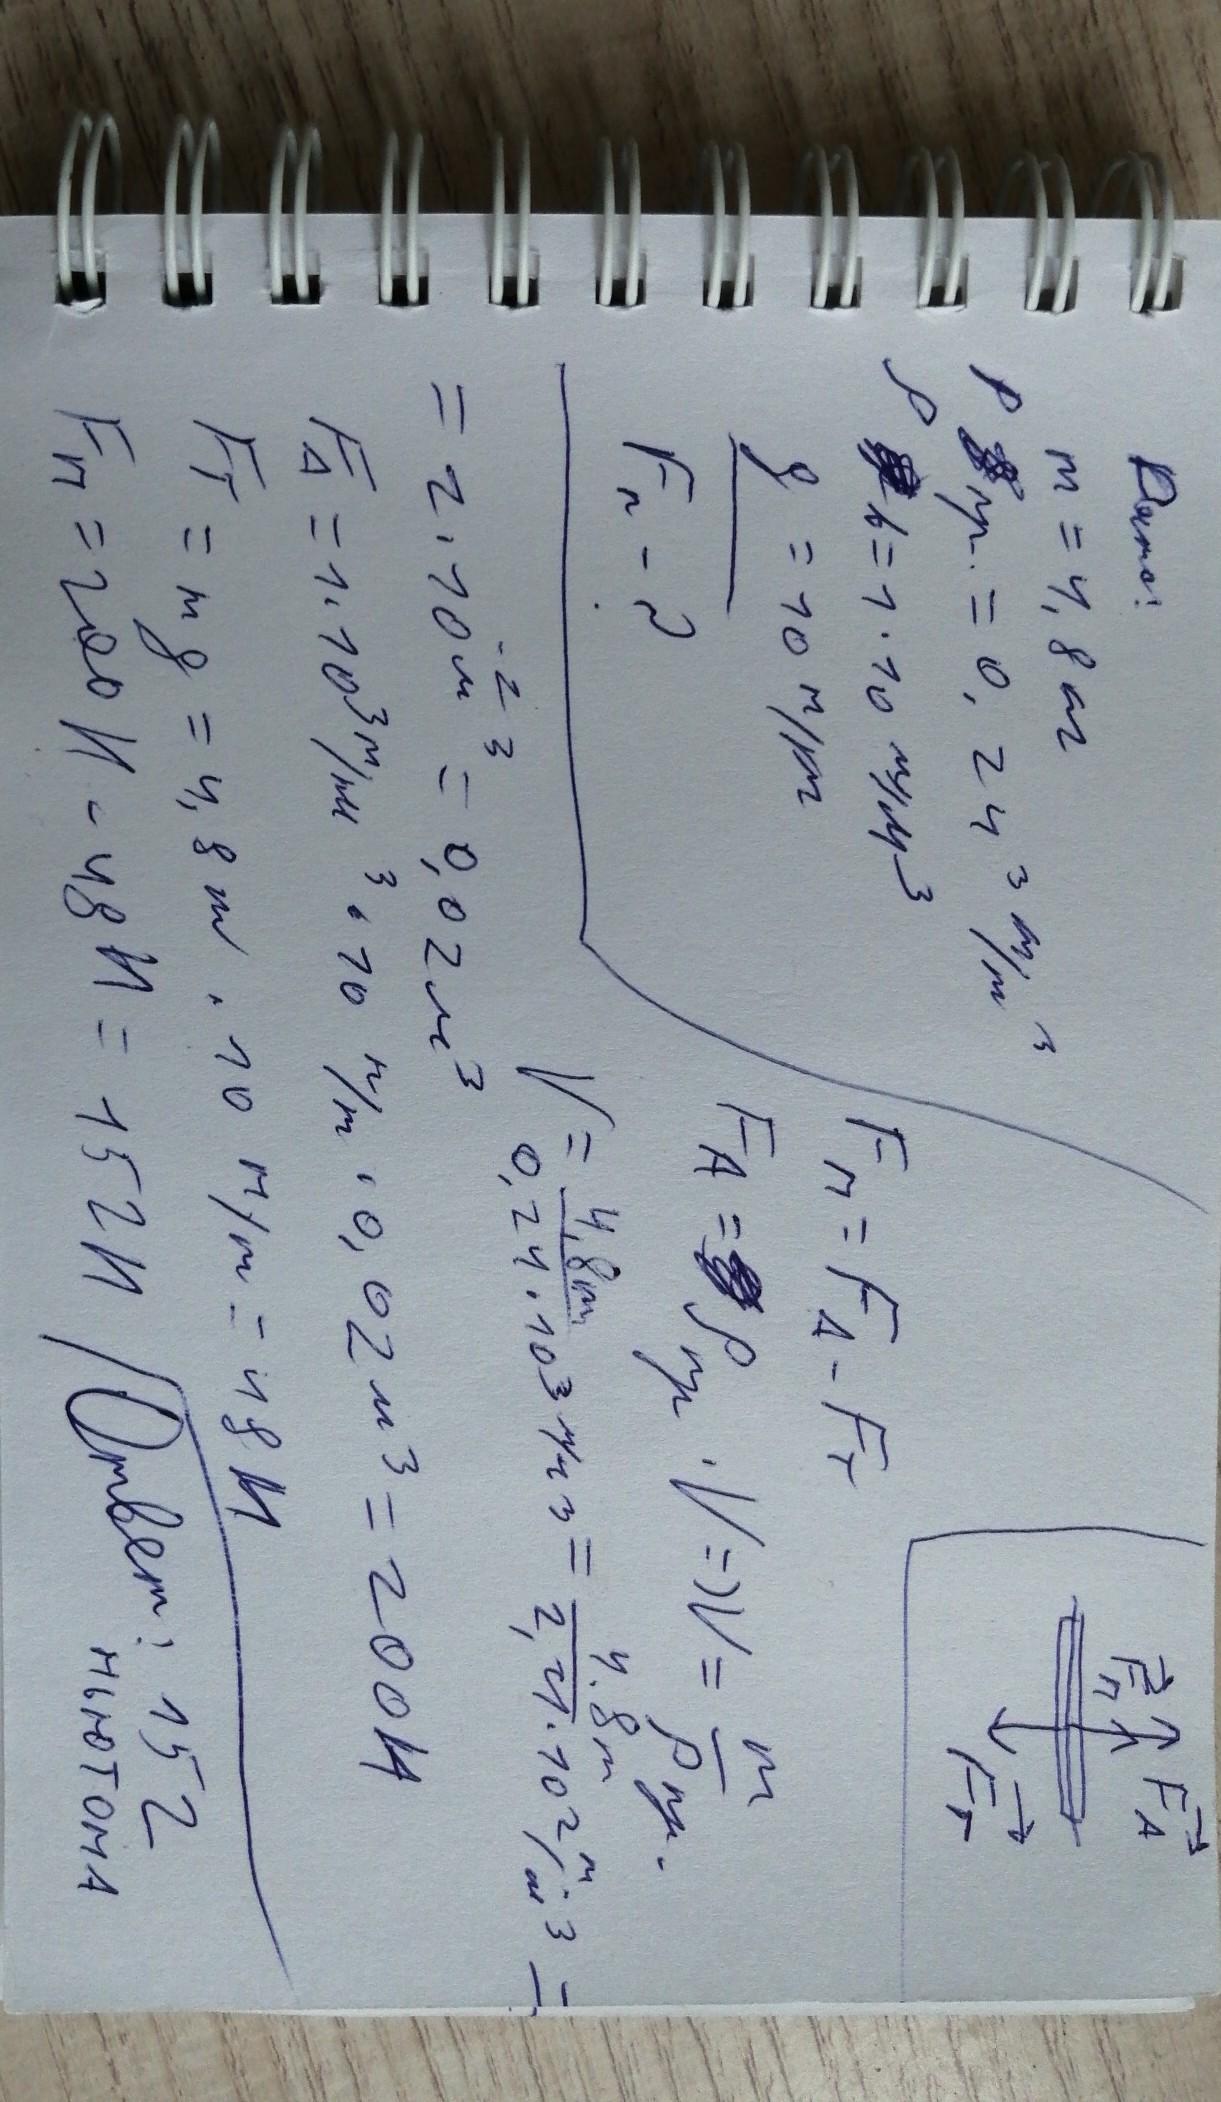 Дано:
m = 4,8 кг
ρ пр. = 0,24 ³ кг/м ³
ρ в = 1·10 кг/м³
g = 10 н/кг
Fп - ?
Fп = FА - Fт
FА = ρпр. · V => V = m/ρпр.
V = 4,8кг/0,24·10³ кг/м³ = 4.8кг/2,4·10² кг/м³ =
= 2·10м⁻²³ = 0,02м³
FА = 1·10³ кг/м³ · 10 н/кг · 0,02м³ = 200Н
Fт = mg = 4,8кг · 10 н/кг = 48Н
Fп = 200Н - 48Н = 152Н
Ответ: 152
ньютона
FА
Fп
Fт